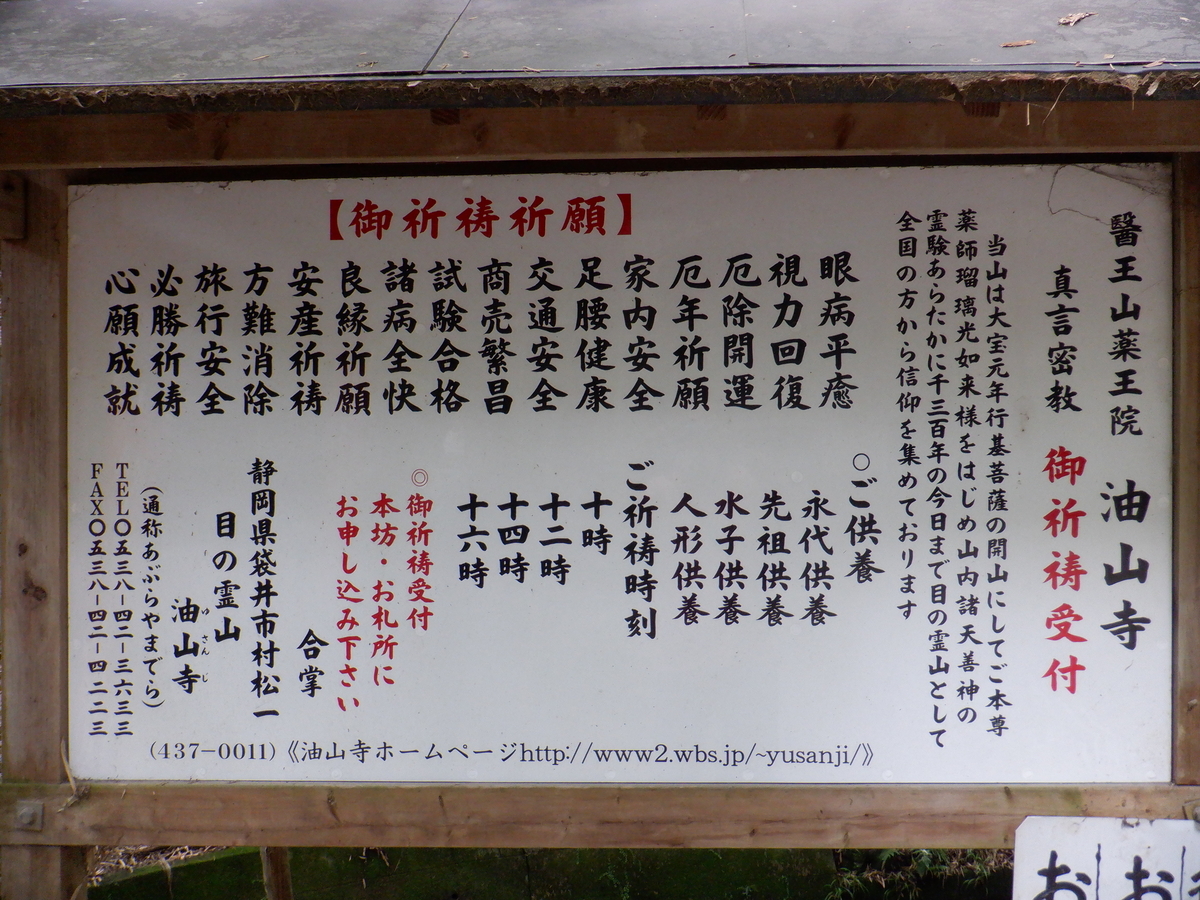 醫王山薬王院 油山寺
真言密教 御祈祷受付
当山は大宝元年行基菩薩の開山にしてご本尊
薬師瑠璃光如来様をはじめ山内諸天善神の
霊験あらたかに千三百年の今日まで目の霊山として
全国の方から信仰を集めております
【御祈祷祈願】
眼病平癒
視力回復
厄除開運
厄年祈願
家内安全
足腰健康
交通安全
商売繁昌
試験合格
諸病全快
良縁祈願
安産祈祷
方難消除
旅行安全
必勝祈祷
心願成就
○ご供養
永代供養
先祖供養
水子供養
人形供養
ご祈祷時刻
十時
十二時
十四時
十六時
◎御祈祷受付
本坊・お札所に
お申し込み下さい
合掌
静岡県袋井市村松一
目の霊山
油山寺
ゆさんじ
(通称あぶらやまでら)
TEL〇五三八−四二−三六三三
FAX〇五三八−四二−四二二三
(437−0011)《油山寺ホームページhttp://www2.wbs.jp/~yusanji/》